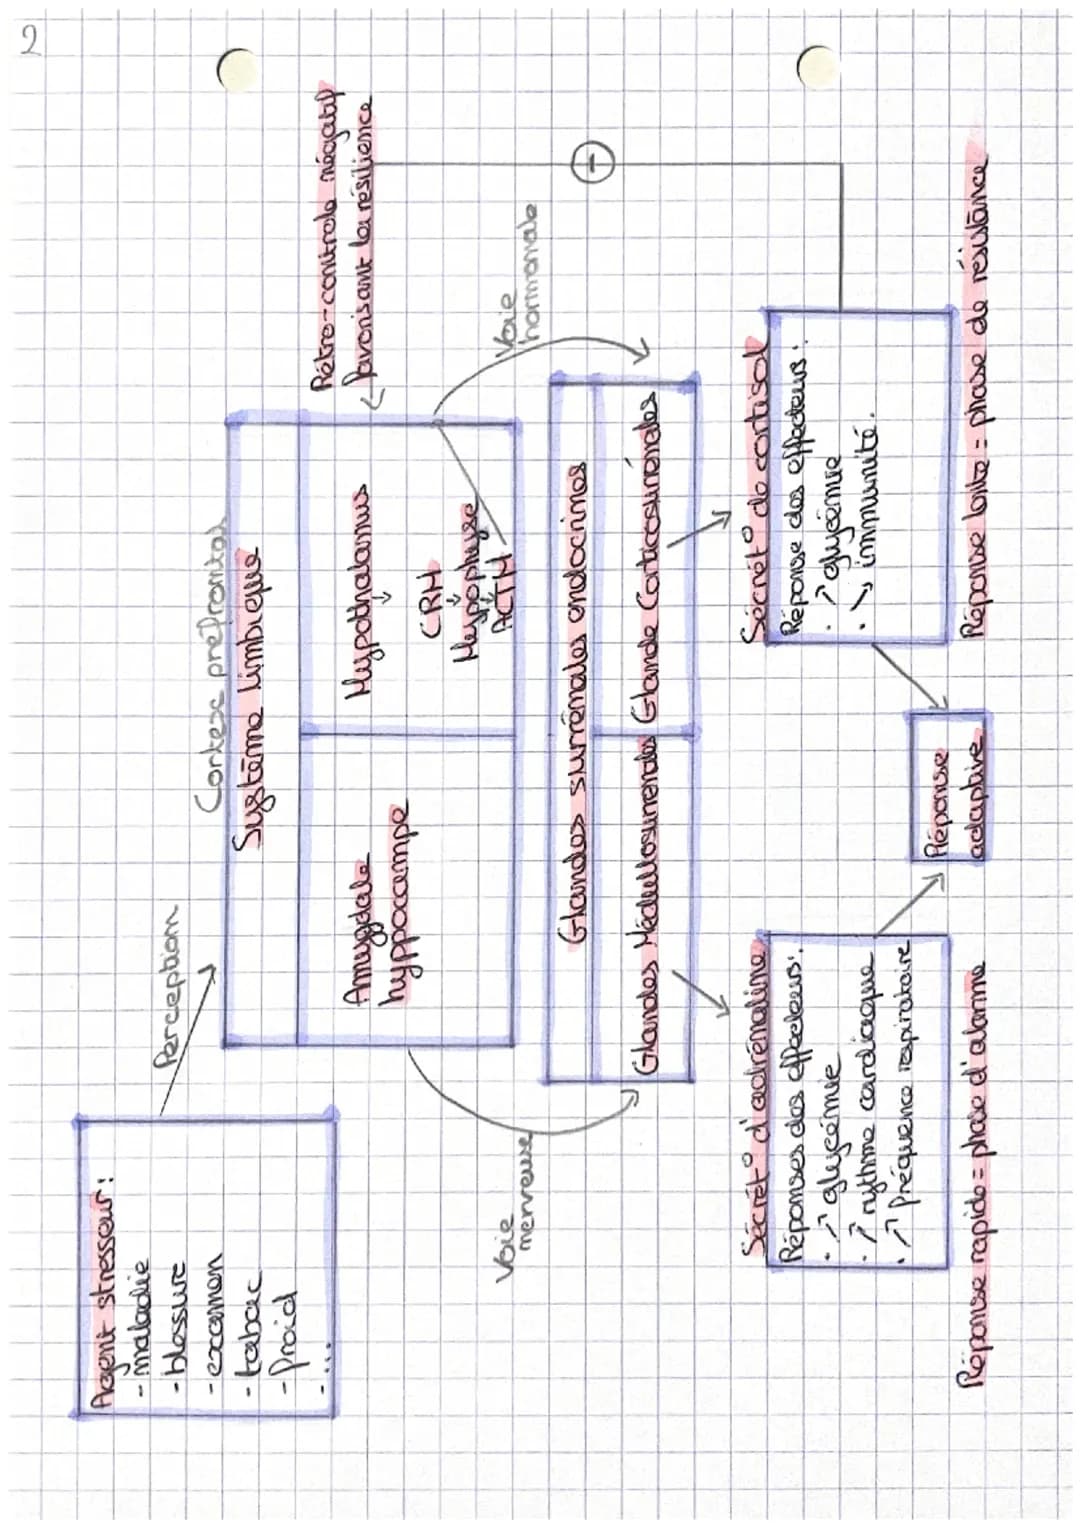 2
Agent stresseur :
- maladie
- blessure
- examen
- tabac
- froid
- ...
Perception
Cortex préfrontal
Système limbique
Amygdale
hyppocampe
Hypothalamus
↓
CRH
↓
Hypophyse
↓
ACTH
Rétro-controle négatif
favorisant la résilience
Voie
nerveuse
Voie
hormonale
-
Glandes surrénales endocrines
Glandes Médullosurrénales
Glande Corticosurrénales
Sécret° d'adrénaline
Réponses des effecteurs :
. ↗ glycémie
. ↗ rythme cardiaque
. ↗ fréquence respiratoire
Réponse rapide = phase d'alarme
Sécret° de cortisol
Réponse des effecteurs :
. ↗ glycémie
. ↘ immunité.
Réponse lente = phase de résistance
Réponse
adaptive